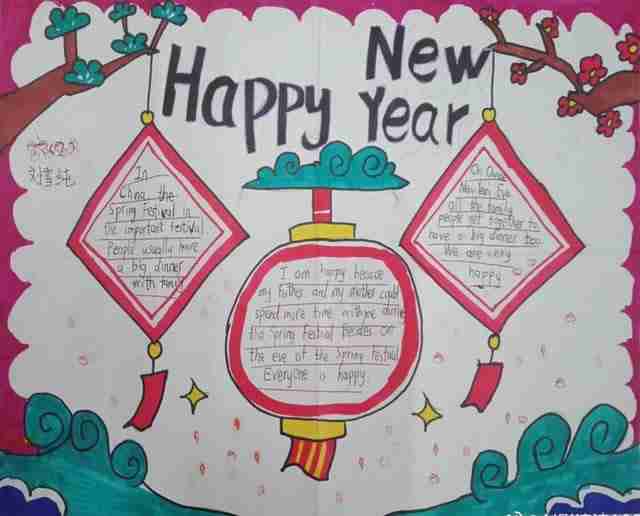 Happy New Year
刘雪纯
In
China, the
Spring Festival is
the important festival.
People usually have
a big dinner
with family
I am happy because
my father and my mother could
spend more time with me during
the Spring Festival Besides on
the eve of the Spring Festival
Everyone is happy.
On Chinese
New Year Eve
all the family
people get together to
have a big dinner too.
We are very
happy